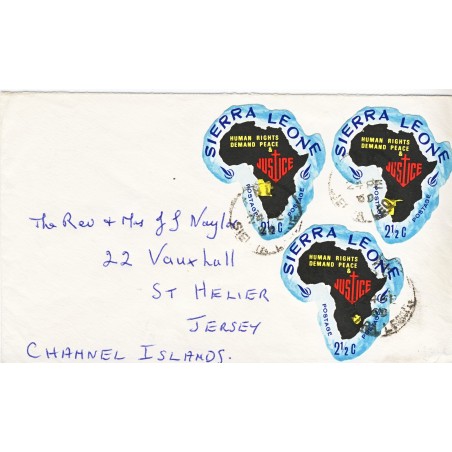 SIERRA LEONE
HUMAN RIGHTS
DEMAND PEACE
&
JUSTICE
POSTAGE
POSTAGE
2½ C
SIERRA LEONE
HUMAN RIGHTS
DEMAND PEACE
&
JUSTICE
POSTAGE
POSTAGE
2½ C
SIERRA LEONE
HUMAN RIGHTS
DEMAND PEACE
&
JUSTICE
POSTAGE
POSTAGE
2½ C
The Rev & Mrs J J Naylor
22 Vauxhall
ST HELIER
JERSEY
CHANNEL ISLANDS.